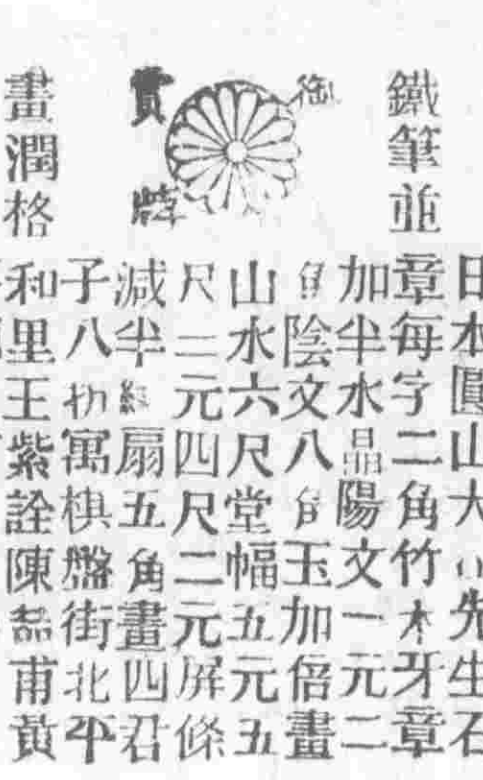 鐵筆並
御
賞牌
畫潤格
日本圓山大迂先生石
章每字二角竹木牙章
加半水晶陽文一元二
角陰文八角玉加倍畫
山水六尺堂幅五元五
尺三元四尺二元屏條
減半紈扇五角畫四君
子八折寓棋盤街北平
和里王紫詮陳喆甫黃